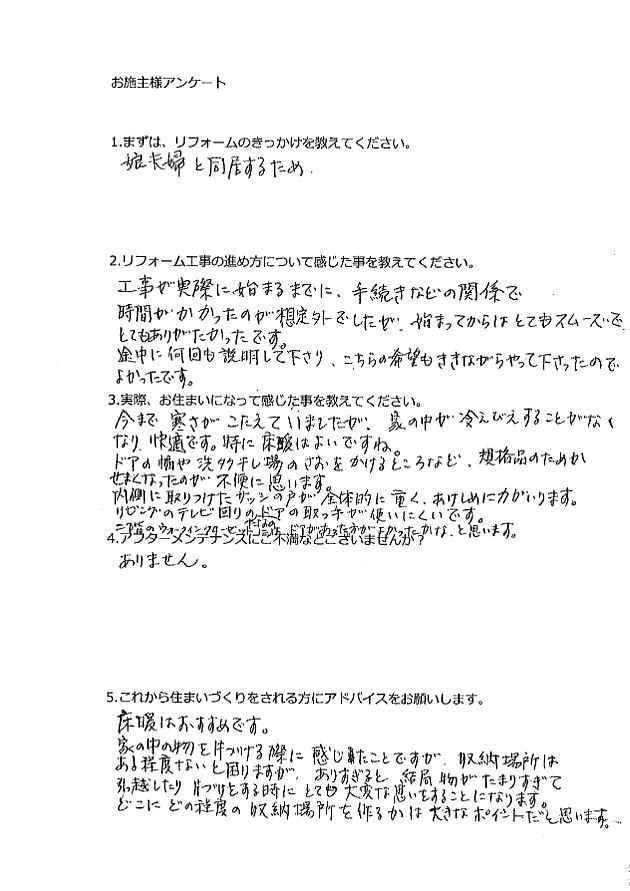 お施主様アンケート
1.まずは、リフォームのきっかけを教えてください。
娘夫婦と同居するため.
2.リフォーム工事の進め方について感じた事を教えてください。
工事が実際に始まるまでに、手続きなどの関係で
時間がかかったのが想定外でしたが、始まってからはとてもスムーズで
とてもありがたかったです。
途中に何回も説明して下さり、こちらの希望もききながらやって下さったので
よかったです。
3.実際、お住まいになって感じた事を教えてください。
今まで寒さがこたえていましたが、家の中が冷えびえすることがなく
なり、快適です。特に床暖はよいですね。
ドアの幅や洗タク干し場のさおをかけるところなど、規格品のためか
せまくなったのが不便に思います。
内側に取りつけたサッシの戸が全体的に重く、あけしめに力がいります。
リビングのテレビ回りのドアの取っ手が使いにくいです。
二階のウォークインクローゼット ドアがあった方がよかったかな、と思います。
4.アフターメンテナンスにご不満などございませんか？
ありません。
5.これから住まいづくりをされる方にアドバイスをお願いします。
床暖はおすすめです。
家の中の物を片づける際に感じたことですが、収納場所は
ある程度ないと困りますが、ありすぎると結局物がたまりすぎて
引越したり片づけをする時にとても大変な思いをすることになります。
どこにどの程度の収納場所を作るかは大きなポイントだと思います。